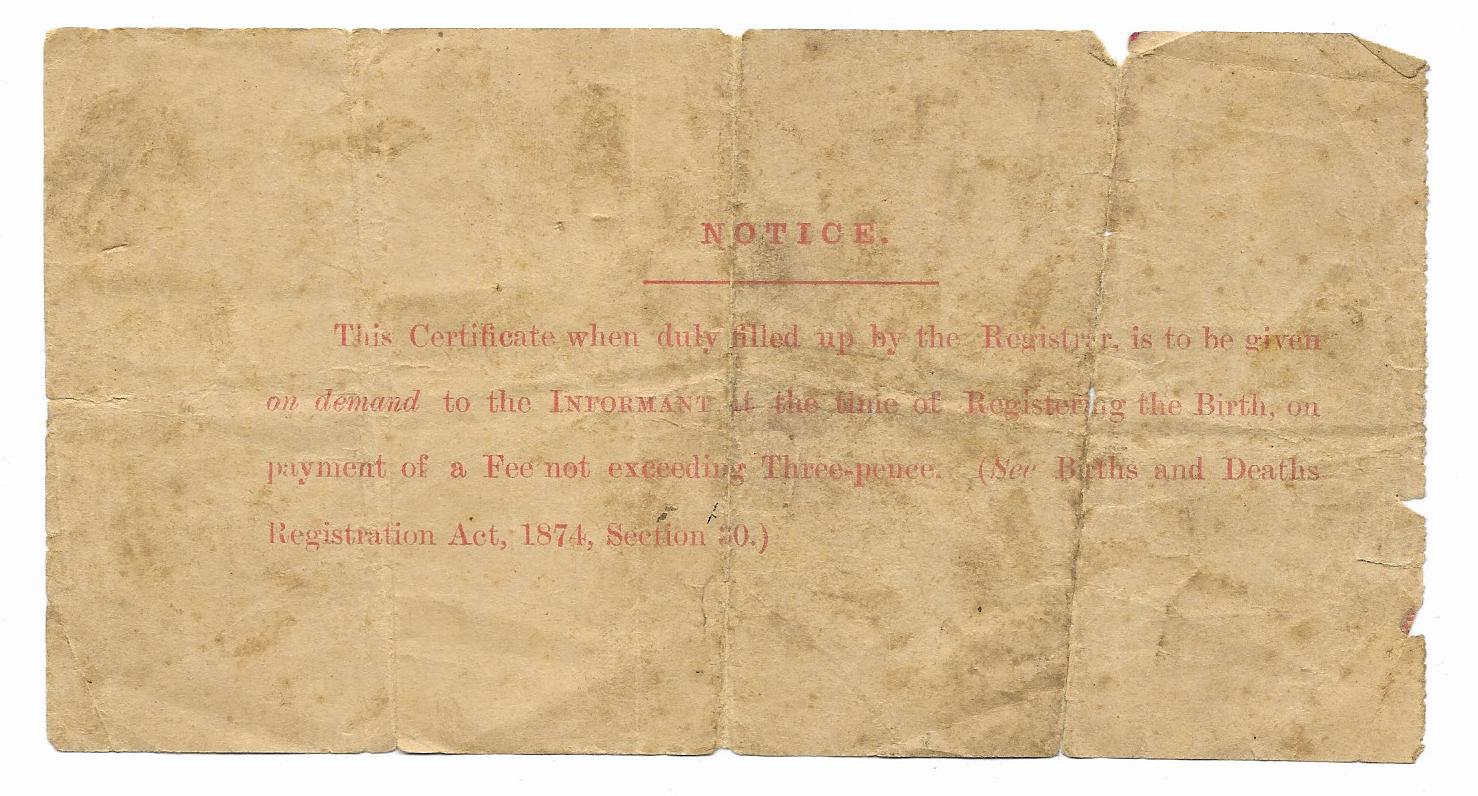 NOTICE.
This Certificate when duly filled up by the Registrar, is to be given
on demand to the INFORMANT at the time of Registering the Birth, on
payment of a Fee not exceeding Three-pence. (See Births and Deaths
Registration Act, 1874, Section 30.)